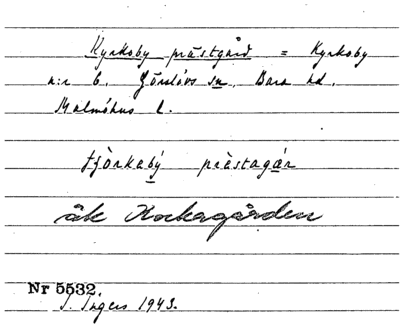 Kyrkoby prästgård = Kyrkoby
n:r 6. Görslövs sn, Bara hd,
Malmöhus l.
prästagår
åk Kockagården
Nr 5532.
I. Ingers 1943.